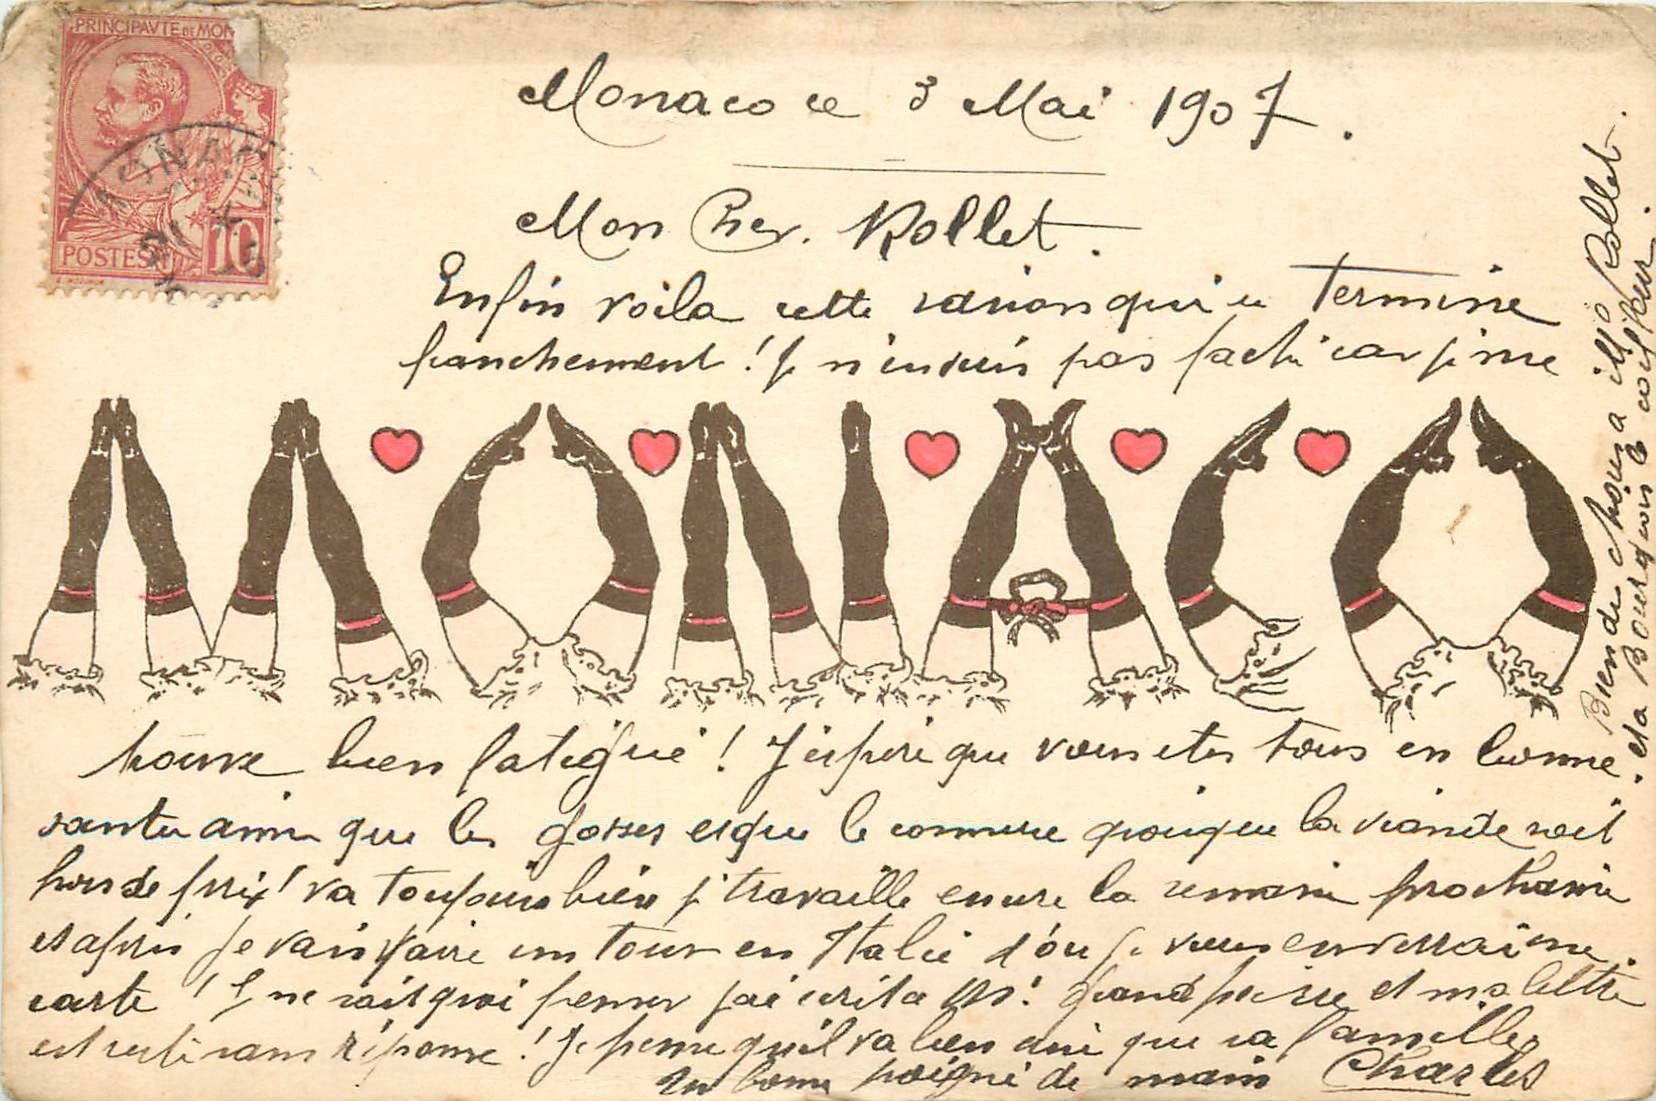 PRINCIPAUTE DE MON
POSTES
10
MONAC
Monaco ce 3 Mai 1907.
Mon Cher. Rollet.
Enfin voila cette saison qui se Termine
franchement! Je n'en suis pas faché car je me
MONACO
trouve bien fatigué! J'espère que vous etes tous en bonne
santée ainsi que les gosses et que le commerce quoique la viande soit
hors de prix! va toujours bien je travaille encore la semaine prochaine
et après je vais faire un tour en Italie d'ou je vous enverrai une
carte! Je ne sais quoi penser j'ai écrit a grand pere et ma lettre
est resté sans réponse! Je pense qu'il va bien ainsi que sa famille
Une bonne poigné de main Charles
Bien des choses a Rollet.
et a Bourguois le coiffeur.